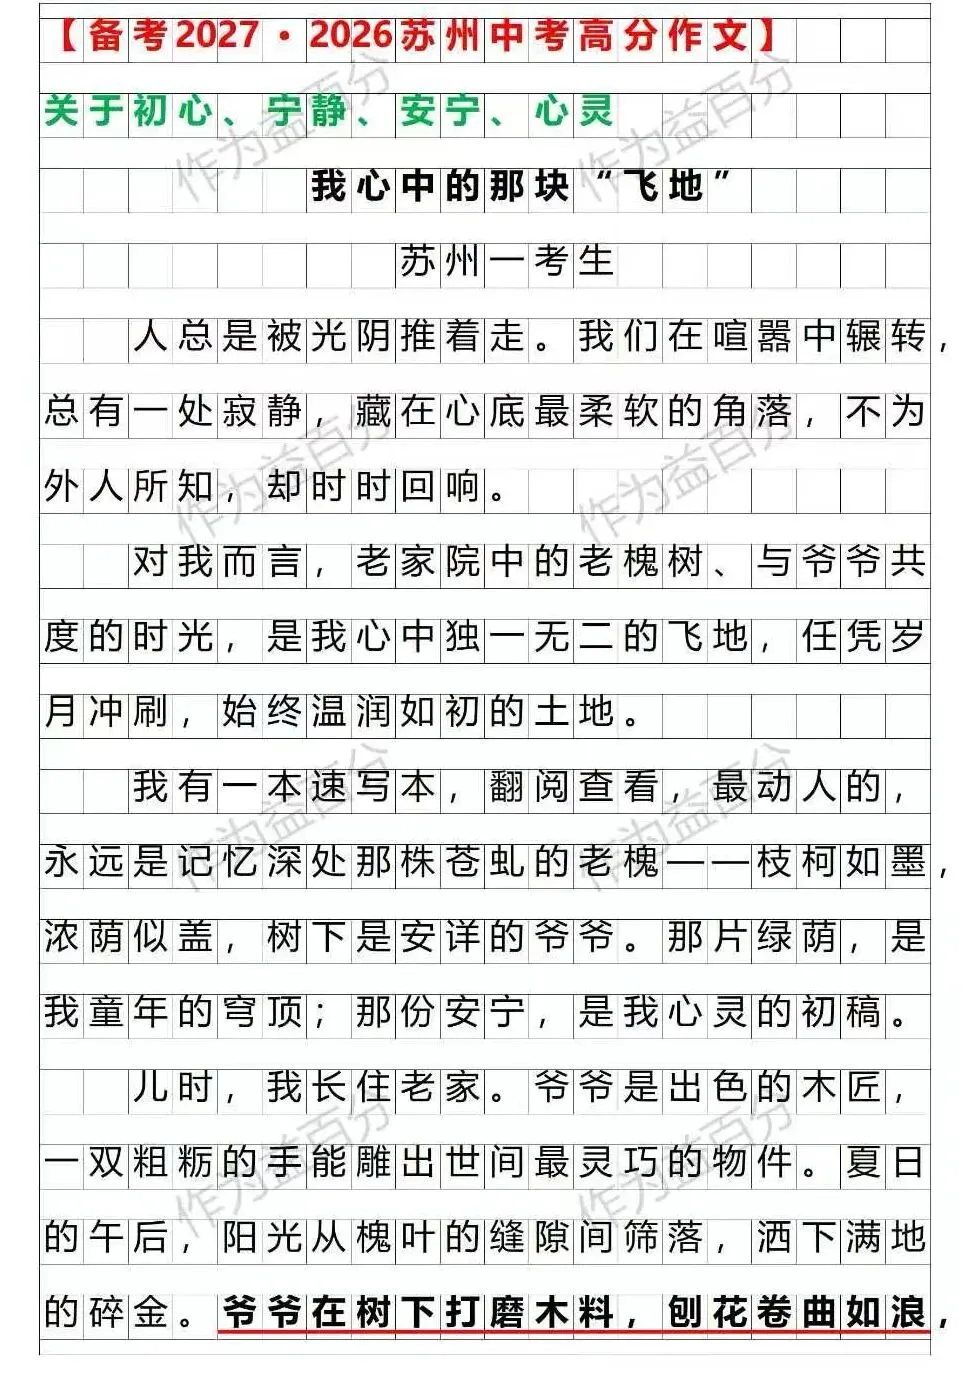 【备考2027·2026苏州中考高分作文】
关于初心、宁静、安宁、心灵
我心中的那块“飞地”
苏州一考生
人总是被光阴推着走。我们在喧嚣中辗转，
总有一处寂静，藏在心底最柔软的角落，不为
外人所知，却时时回响。
对我而言，老家院中的老槐树、与爷爷共
度的时光，是我心中独一无二的飞地，任凭岁
月冲刷，始终温润如初的土地。
我有一本速写本，翻阅查看，最动人的，
永远是记忆深处那株苍虬的老槐——枝柯如墨，
浓荫似盖，树下是安详的爷爷。那片绿荫，是
我童年的穹顶；那份安宁，是我心灵的初稿。
儿时，我长住老家。爷爷是出色的木匠，
一双粗粝的手能雕出世间最灵巧的物件。夏日
的午后，阳光从槐叶的缝隙间筛落，洒下满地
的碎金。爷爷在树下打磨木料，刨花卷曲如浪，
作为益百分
作为益百分
作为益百分
作为益百分
作为益百分
作为益百分
作为益百分
作为益百分